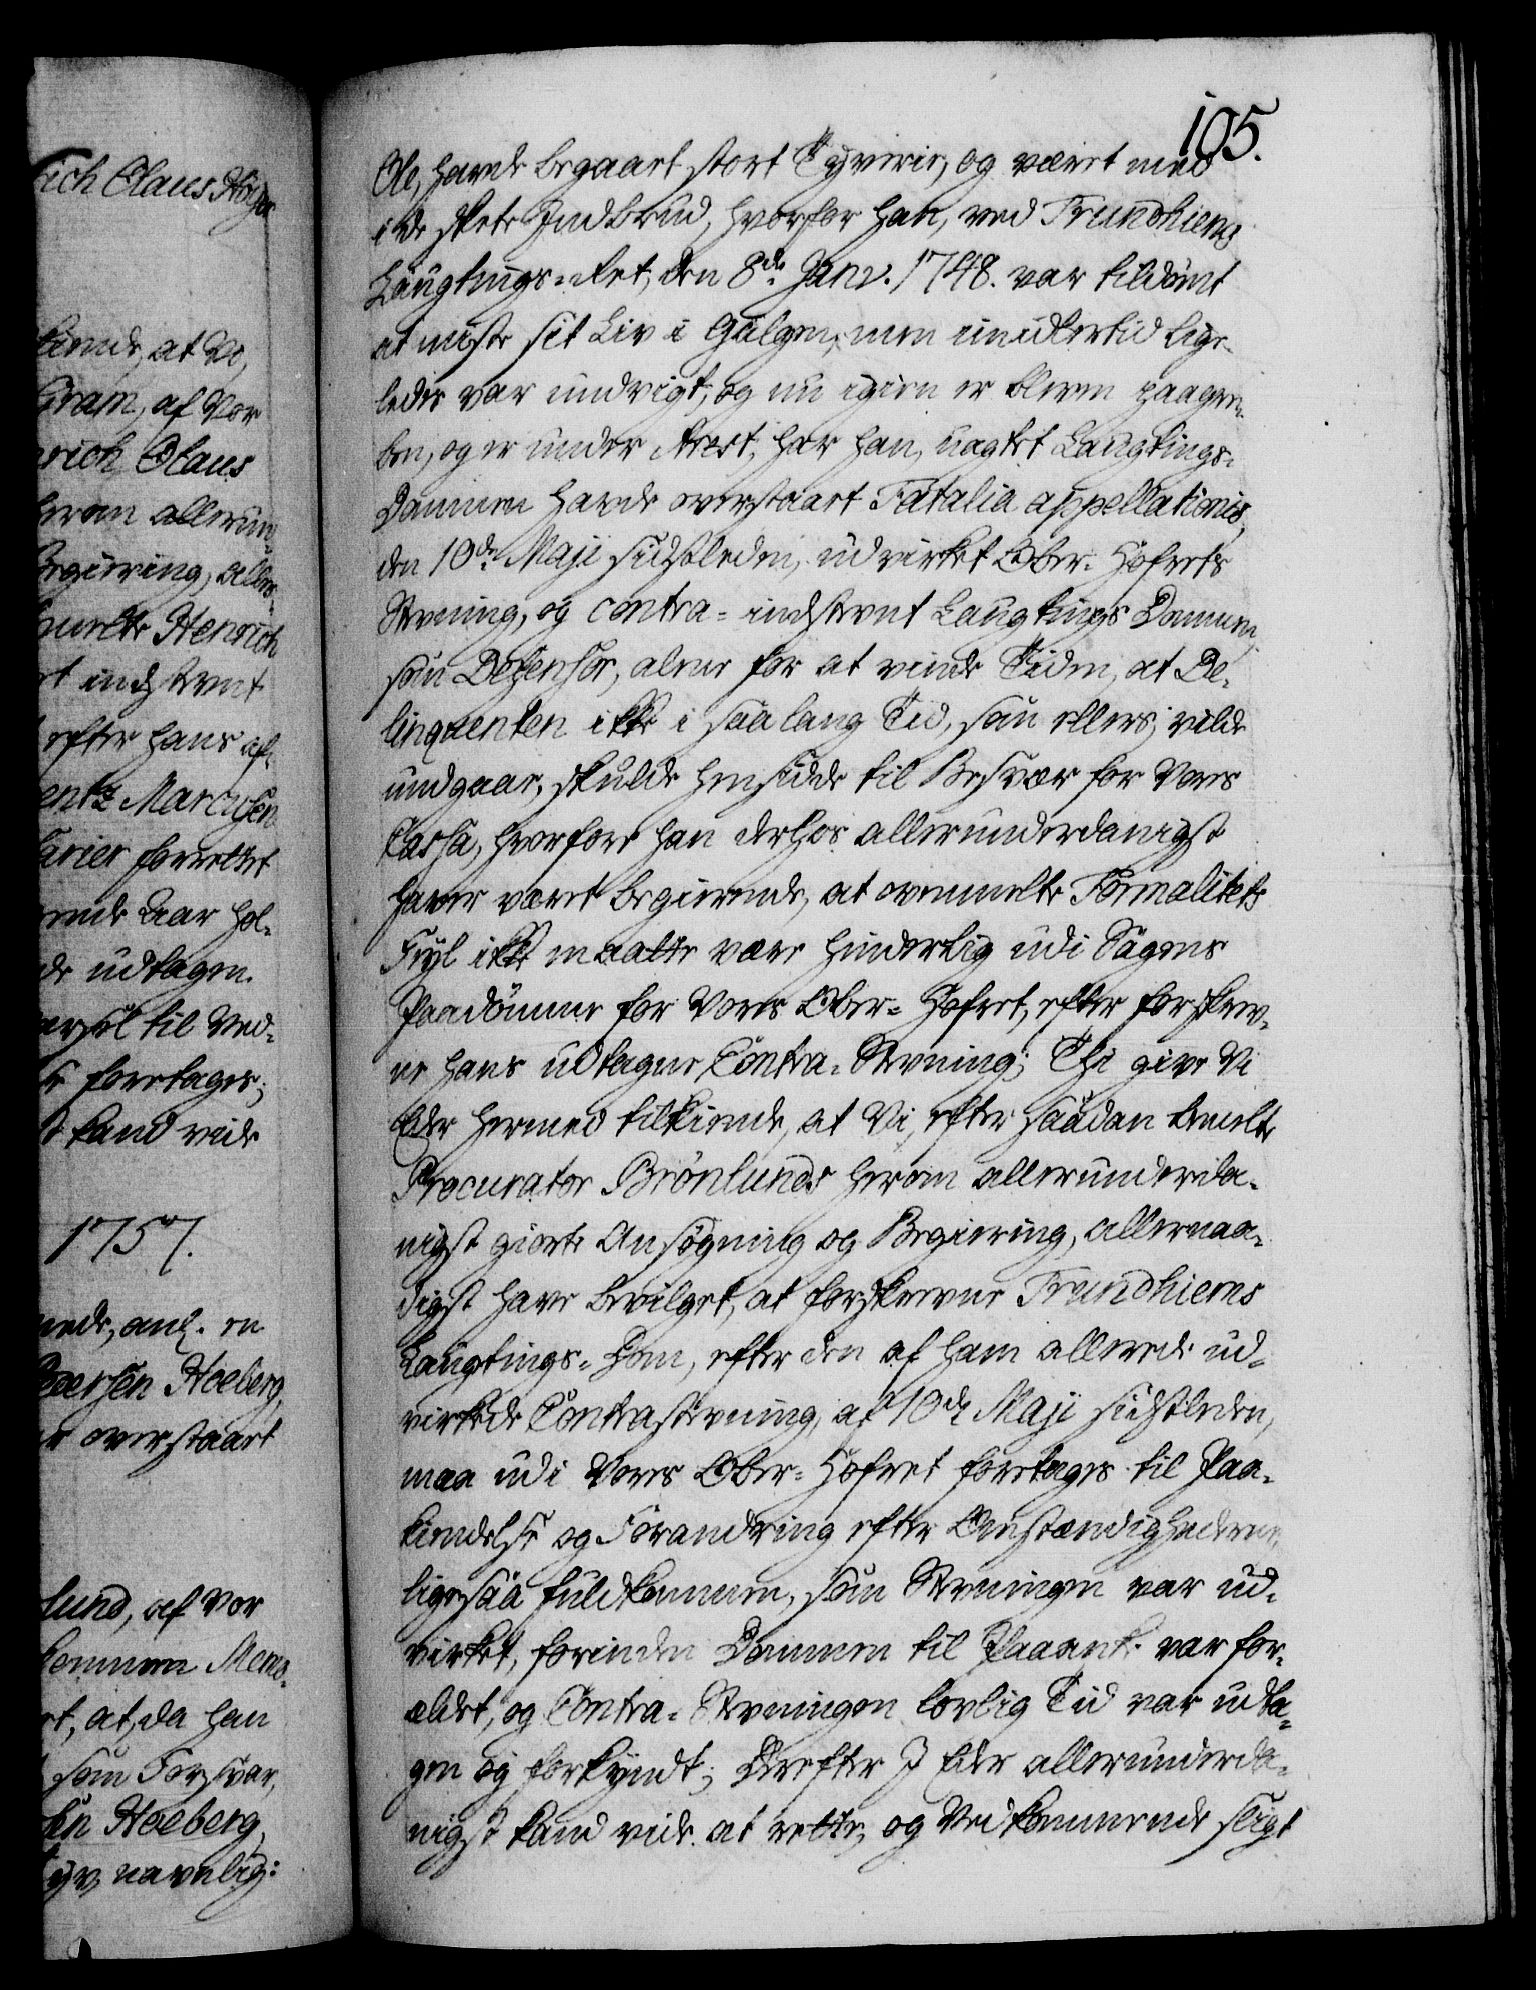 ich Claus Höyer
kiende, at Vi,
Gram, af Vor
rich Claus
herom allerun-
Begiering, aller-
meldte Henrich
indstevnt
efter hans af-
entz Marcusen
forrettet
rende Aar hol-
de udtagen.
arsel til Ved-
foretages;
kand vide
1757.
rede, anl. en
Pedersen Hoeberg,
overstaaet
lund, af Vor
kommen Memo-
rt, at, da han
som Forsvar,
sen Hoeberg,
Tyv, navnlig:
105.
Ole, havde begaaet stort Tyverie, og været med
i de skete Indbrud, hvorfor han, ved Trundhiems
Laugtings-Ret, den 8de Janv. 1748. var tildømt
at miste sit Liv i Galgen, men imidlertid lige-
ledes var undvigt, og nu igien er bleven paagre-
ben, og er under Arest, har han, uagtet Laugtings-
Dommen havde overstaaet Fatalia appellationis,
den 10de Maji sidstleden, udvirket Ober-Hofrets
Stevning, og contra-indstevnt Laugtings Dommen,
som Defensor, alene for at vinde Tiden, at De-
linqventen ikke i saa lang Tid, som ellers vilde
undgaae, skulde hensidde til Besvær for Vores
Cassa, hvorfore han derhos allerunderdanigst
haver været begierende, at ovenmeldte Formalitets
Feyl ikke maatte være hinderlig udi Sagens
Paadømme for Vores Ober-Hofret, efter forskrev-
ne hans udtagne Contra-Stevning; Thi give Vi
Eder hermed tilkiende, at Vi, efter saadan bemeldte
Procurator Brönlunds herom allerunderda-
nigst giorte Ansøgning og Begiering, allernaa-
digst have bevilget, at forskrevne Trundhiems
Laugtings-Dom, efter den af ham allerede ud-
virkede Contrastevning, af 10de Maji sidstleden,
maa udi Vores Ober-Hofret foretages til Paa-
kiendelse og Forandring efter Omstændighederne,
ligesaa fuldkommen, som Stevningen var ud-
virket, forinden Dommen til Paaank var for-
ældet, og Contra-Stevningen lovlig Tid var udta-
gen og forkyndt; Derefter I Eder allerunderda-
nigst kand vide at rette, og Vedkommende sligt